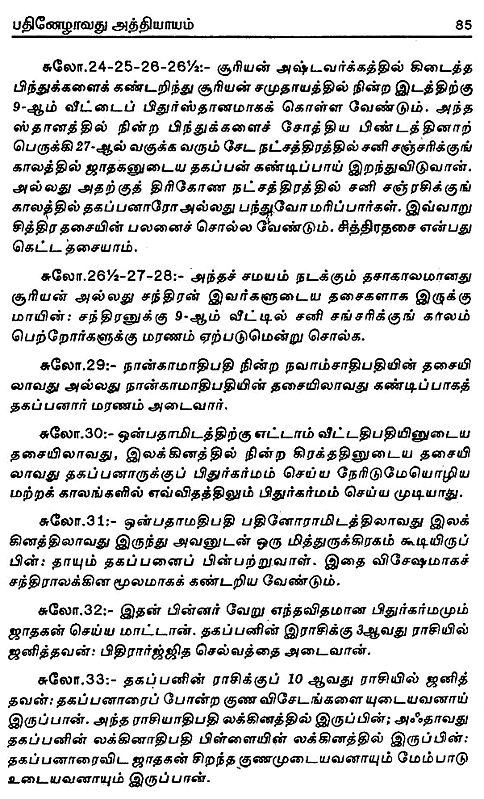 பதினேழாவது அத்தியாயம் 85
சுலோ.24-25-26-26½:- சூரியன் அஷ்டவர்க்கத்தில் கிடைத்த
பிந்துக்களைக் கண்டறிந்து சூரியன் சமுதாயத்தில் நின்ற இடத்திற்கு
9-ஆம் வீட்டைப் பிதுர்ஸ்தானமாகக் கொள்ள வேண்டும். அந்த
ஸ்தானத்தில் நின்ற பிந்துக்களைச் சோத்திய பிண்டத்தினாற்
பெருக்கி 27-ஆல் வகுக்க வரும் சேட நட்சத்திரத்தில் சனி சஞ்சரிக்குங்
காலத்தில் ஜாதகனுடைய தகப்பன் கண்டிப்பாய் இறந்துவிடுவான்.
அல்லது அதற்குத் திரிகோண நட்சத்திரத்தில் சனி சஞ்ரசிக்குங்
காலத்தில் தகப்பனாரோ அல்லது பந்துவோ மரிப்பார்கள். இவ்வாறு
சித்திர தசையின் பலனைச் சொல்ல வேண்டும். சித்திரதசை என்பது
கெட்ட தசையாம்.
சுலோ.26½-27-28:- அந்தச் சமயம் நடக்கும் தசாகாலமானது
சூரியன் அல்லது சந்திரன் இவர்களுடைய தசைகளாக இருக்கு
மாயின்: சந்திரனுக்கு 9-ஆம் வீட்டில் சனி சங்சரிக்குங் காலம்
பெற்றோர்களுக்கு மரணம் ஏற்படுமென்று சொல்க.
சுலோ.29:- நான்காமாதிபதி நின்ற நவாம்சாதிபதியின் தசையி
லாவது அல்லது நான்காமாதிபதியின் தசையிலாவது கண்டிப்பாகத்
தகப்பனார் மரணம் அடைவார்.
சுலோ.30:- ஒன்பதாமிடத்திற்கு எட்டாம் வீட்டதிபதியினுடைய
தசையிலாவது, இலக்கினத்தில் நின்ற கிரகத்தினுடைய தசையி
லாவது தகப்பனாருக்குப் பிதுர்கர்மம் செய்ய நேரிடுமேயொழிய
மற்றக் காலங்களில் எவ்விதத்திலும் பிதுர்கர்மம் செய்ய முடியாது.
சுலோ.31:- ஒன்பதாமதிபதி பதினோராமிடத்திலாவது இலக்
கினத்திலாவது இருந்து அவனுடன் ஒரு மித்துருக்கிரகம் கூடியிருப்
பின்: தாயும் தகப்பனைப் பின்பற்றுவாள். இதை விசேஷமாகச்
சந்திராலக்கின மூலமாகக் கண்டறிய வேண்டும்.
சுலோ.32:- இதன் பின்னர் வேறு எந்தவிதமான பிதுர்கர்மமும்
ஜாதகன் செய்ய மாட்டான். தகப்பனின் இராசிக்கு 3ஆவது ராசியில்
ஜனித்தவன்: பிதிரார்ஜ்ஜித செல்வத்தை அடைவான்.
சுலோ.33:- தகப்பனின் ராசிக்குப் 10 ஆவது ராசியில் ஜனித்
தவன்: தகப்பனாரைப் போன்ற குண விசேடங்களை யுடையவனாய்
இருப்பான். அந்த ராசியாதிபதி லக்கினத்தில் இருப்பின்; அஃதாவது
தகப்பனின் லக்கினாதிபதி பிள்ளையின் லக்கினத்தில் இருப்பின்:
தகப்பனாரைவிட ஜாதகன் சிறந்த குணமுடையவனாயும் மேம்பாடு
உடையவனாயும் இருப்பான்.